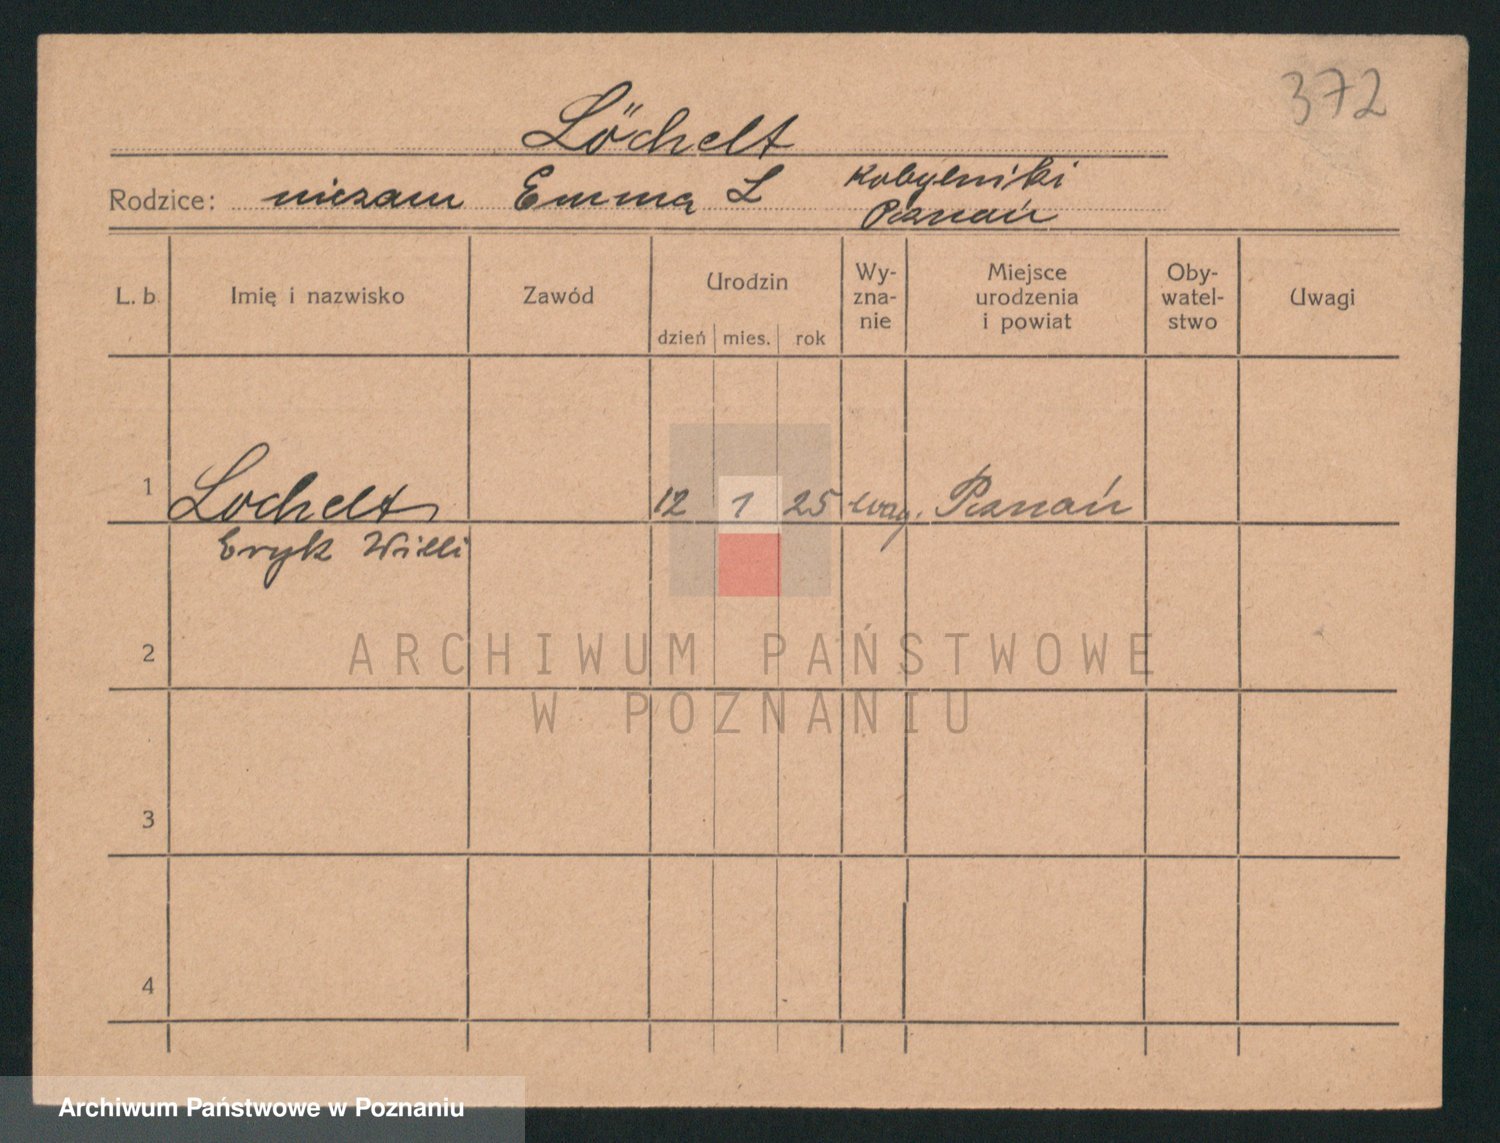 372
Löchelt
Rodzice: niezam Emma L Kobylniki
Poznań
L. b. Imię i nazwisko Zawód Urodzin dzień mies. rok Wy-zna-nie Miejsce urodzenia i powiat Oby-watel-stwo Uwagi
1 Lochelt 12 1 25 ewag. Poznań
Eryk Willi
2
ARCHIWUM PAŃSTWOWE
W POZNANIU
3
4
Archiwum Państwowe w Poznaniu